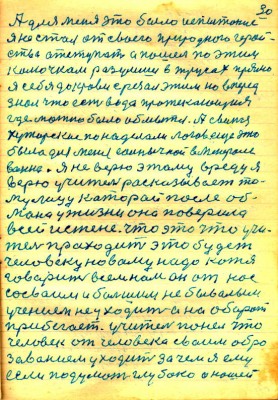 30
А для меня это было испытание
я не стал от своего природного герой-
ства отступать а пошел по этим
колючкам разувши в трусах прямо
я себя до крови срезал этим но вперед
знал что есть вода протекающая
где можно было обмыться. А свиньи
хуторские понаделали логова еще это
была для меня
ванна. я не верю этому вреду я
верю учителя рассказывает по-
которая после об-
мана у жизни она поверила
всей истене. что это что учи-
тел приходит это будет
человеку новому надо хотя
говорит всем нам он от нас
со своим и большим не бывалым
учением не уходит а на оборот
прибегает. учител понел что
человек от человека своим обро
зованием уходит зачем я ему
если подумат глубоко о нашей